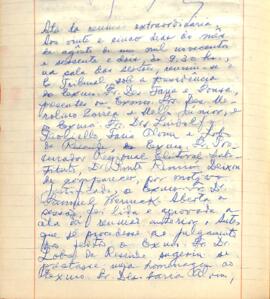 Ata da reunião extraordinária
Aos vinte e cinco dias do mês
de agôsto de um mil novecentos
e sessenta e dois, às 9.30 hs,
na sala das sessões, reuniu-se
o Tribunal sob a Presidência
do Exmo. Sr. Des. Faria e Sousa,
presentes os Exmos. Srs. Des.
Corrêa e Mello Júnior,
e Exmo. Sr. Dr.
Faria Alvim e Lobo
de Resende, e Exmo. Sr. Pro-
curador Regional Eleitoral
Deixou
de comparecer, por motivo
justificado, o Exmo. Sr. Dr.
Samuel Werneck. Aberta a
sessão, foi lida e aprovada a
ata da reunião anterior. Antes
que se procedesse ao julgamento
dos feitos o Exmo. Sr. Dr.
Lobo de Resende sugeriu se
prestasse uma homenagem ao
Exmo. Sr. Des. Faria Alvim,